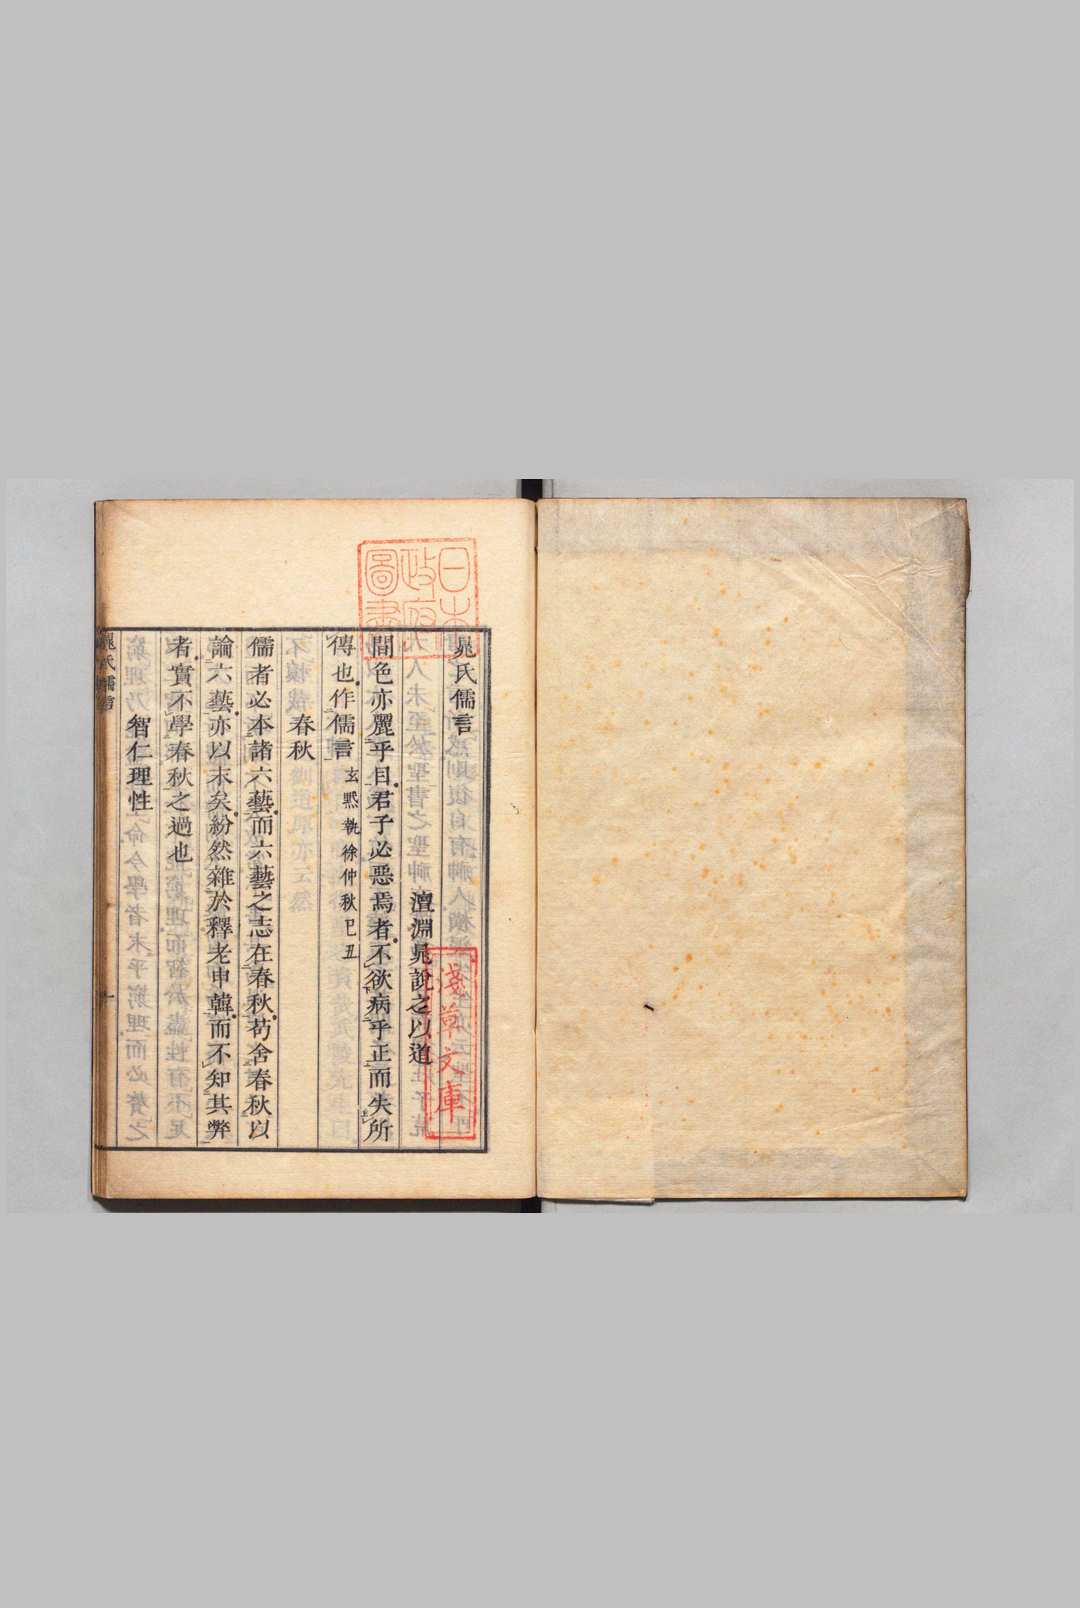 晁氏儒言
澶淵晁說之以道
間色亦麗乎目君子必惡焉者不欲病乎正而失所
傳也作儒言玄黓執徐仲秋己丑
春秋
儒者必本諸六藝而六藝之志在春秋苟舍春秋以
論六藝亦以末矣紛然雜於釋老申韓而不知其弊
者實不學春秋之過也
智仁理性
晁氏儒言
一
日本
政府
圖書
淺草文庫